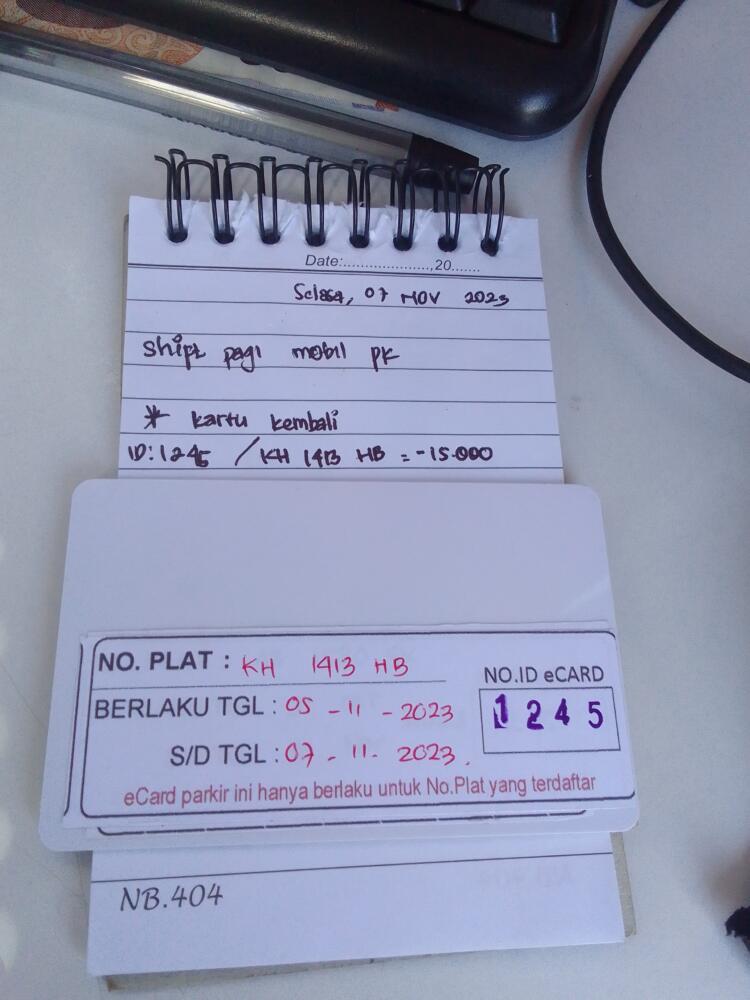 Date:....................,20.......
Selasa, 07 NOV 2023
Shift pagi mobil PK
* kartu kembali
ID: 1245 / KH 1413 HB = -15.000
NO. PLAT : KH 1413 HB
NO.ID eCARD
BERLAKU TGL : 05 - 11 - 2023
1245
S/D TGL : 07 - 11 - 2023.
eCard parkir ini hanya berlaku untuk No.Plat yang terdaftar
NB.404